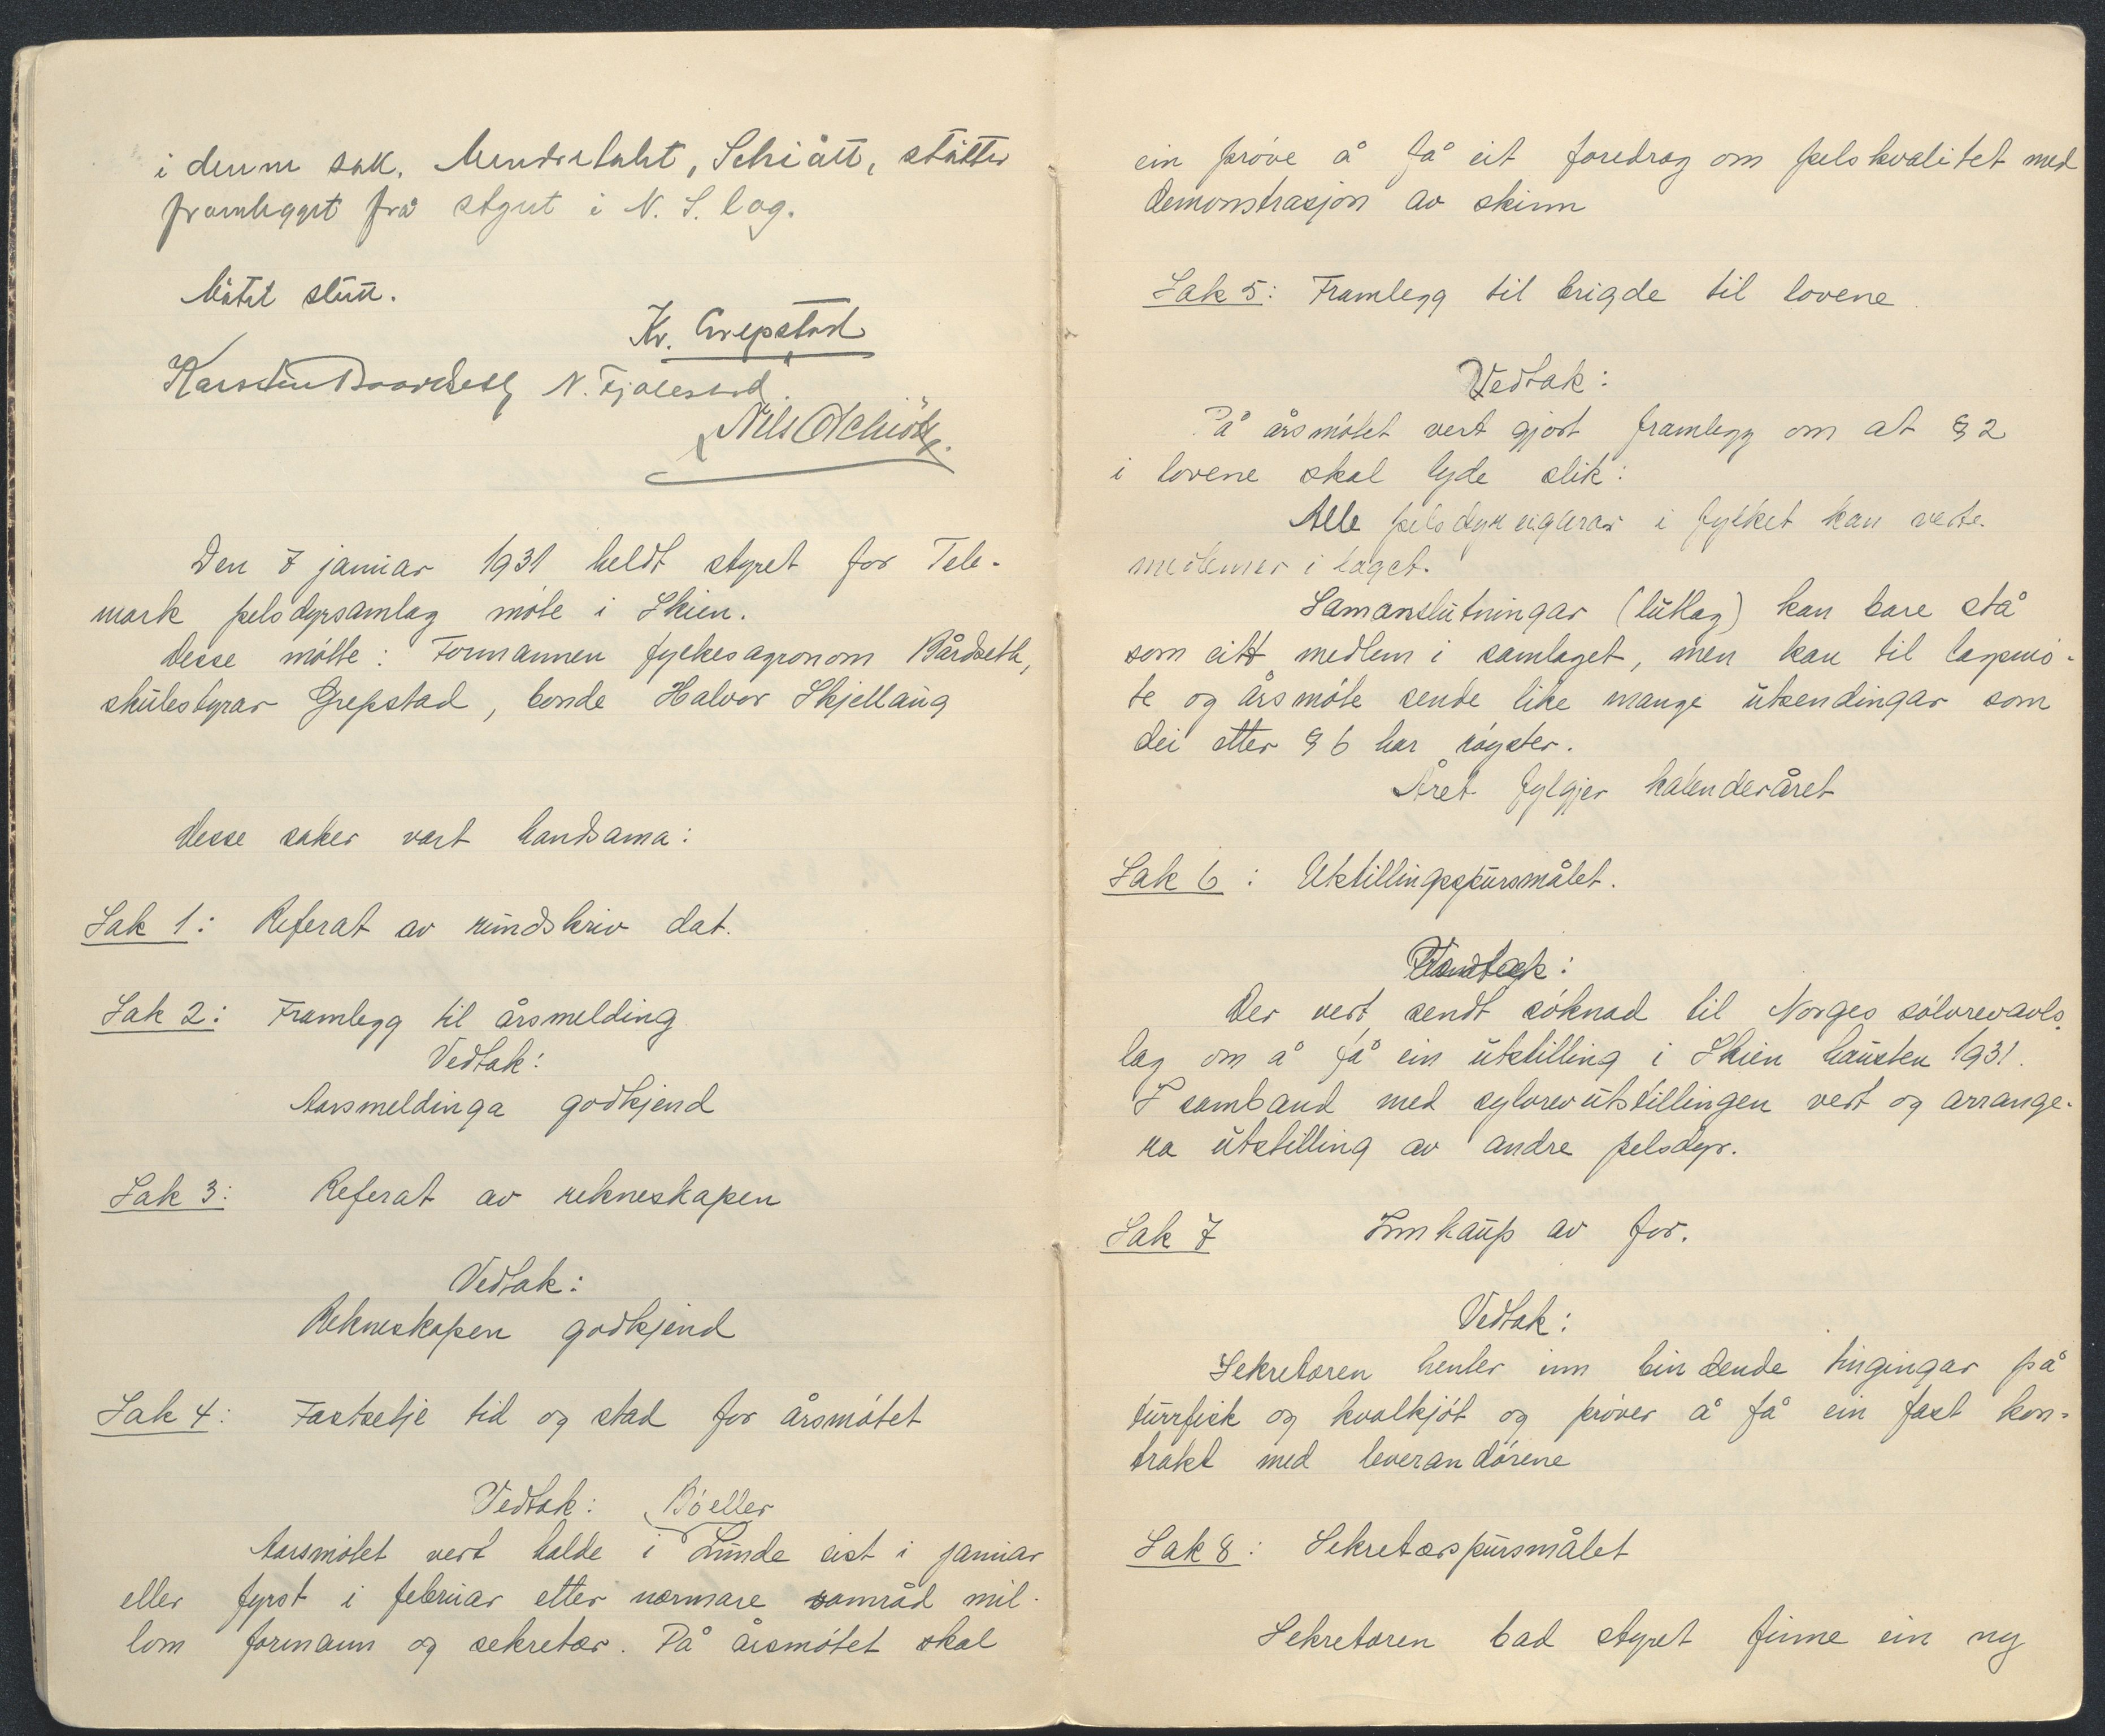 i denne sak. Mindretalet, Schiått, støtter
framlegget frå styret i N. S. lag.
Møtet slutt.
Kr. Grepstad
Karsten Baardseth N. Fjalestad.
Nils O Schiøtt.
Den 7 januar 1931 heldt styret for Tele-
mark pelsdyrsamlag møte i Skien.
Desse møtte: Formannen fylkesagronom Bårdseth,
skulestyrar Grepstad, bonde Halvor Skjellaug
Desse saker vart handsama:
Sak 1: Referat av rundskriv dat.
Sak 2: Framlegg til årsmelding
Vedtak:
Aarsmeldinga godkjend
Sak 3: Referat av rekneskapen
Vedtak:
Rekneskapen godkjend
Sak 4: Fastsetje tid og stad for årsmøtet
Vedtak: Bø eller
Aarsmøtet vert halde i Lunde sist i januar
eller fyrst i februar etter nærmare samråd mil-
lom formann og sekretær. På årsmøtet skal
ein prøve å få eit foredrag om pelskvalitet med
demonstrasjon av skinn
Sak 5: Framlegg til brigde til lovene
Vedtak:
På årsmøtet vert gjort framlegg om at § 2
i lovene skal lyde slik:
Alle pelsdyreigarar i fylket kan verte
medlemer i laget.
Samanslutningar (lutlag) kan bare stå
som eitt medlem i samlaget, men kan til lagsmø-
te og årsmøte sende like mange utsendingar som
dei etter § 6 har røyster.
Året fylgjer kalenderåret
Sak 6: Utstillingsspursmålet.
Vedtak:
Der vert sendt søknad til Norges sølvrevavls-
lag om å få ein utstilling i Skien hausten 1931.
I samband med sylvrevutstillingen vert og arrange-
ra utstilling av andre pelsdyr.
Sak 7 Innkaup av for.
Vedtak:
Sekretæren henter inn bindende tingingar på
turrfisk og kvalkjøt og prøver å få ein fast kon-
trakt med leverandørene
Sak 8: Sekretærspursmålet
Sekretæren bad styret finne ein ny